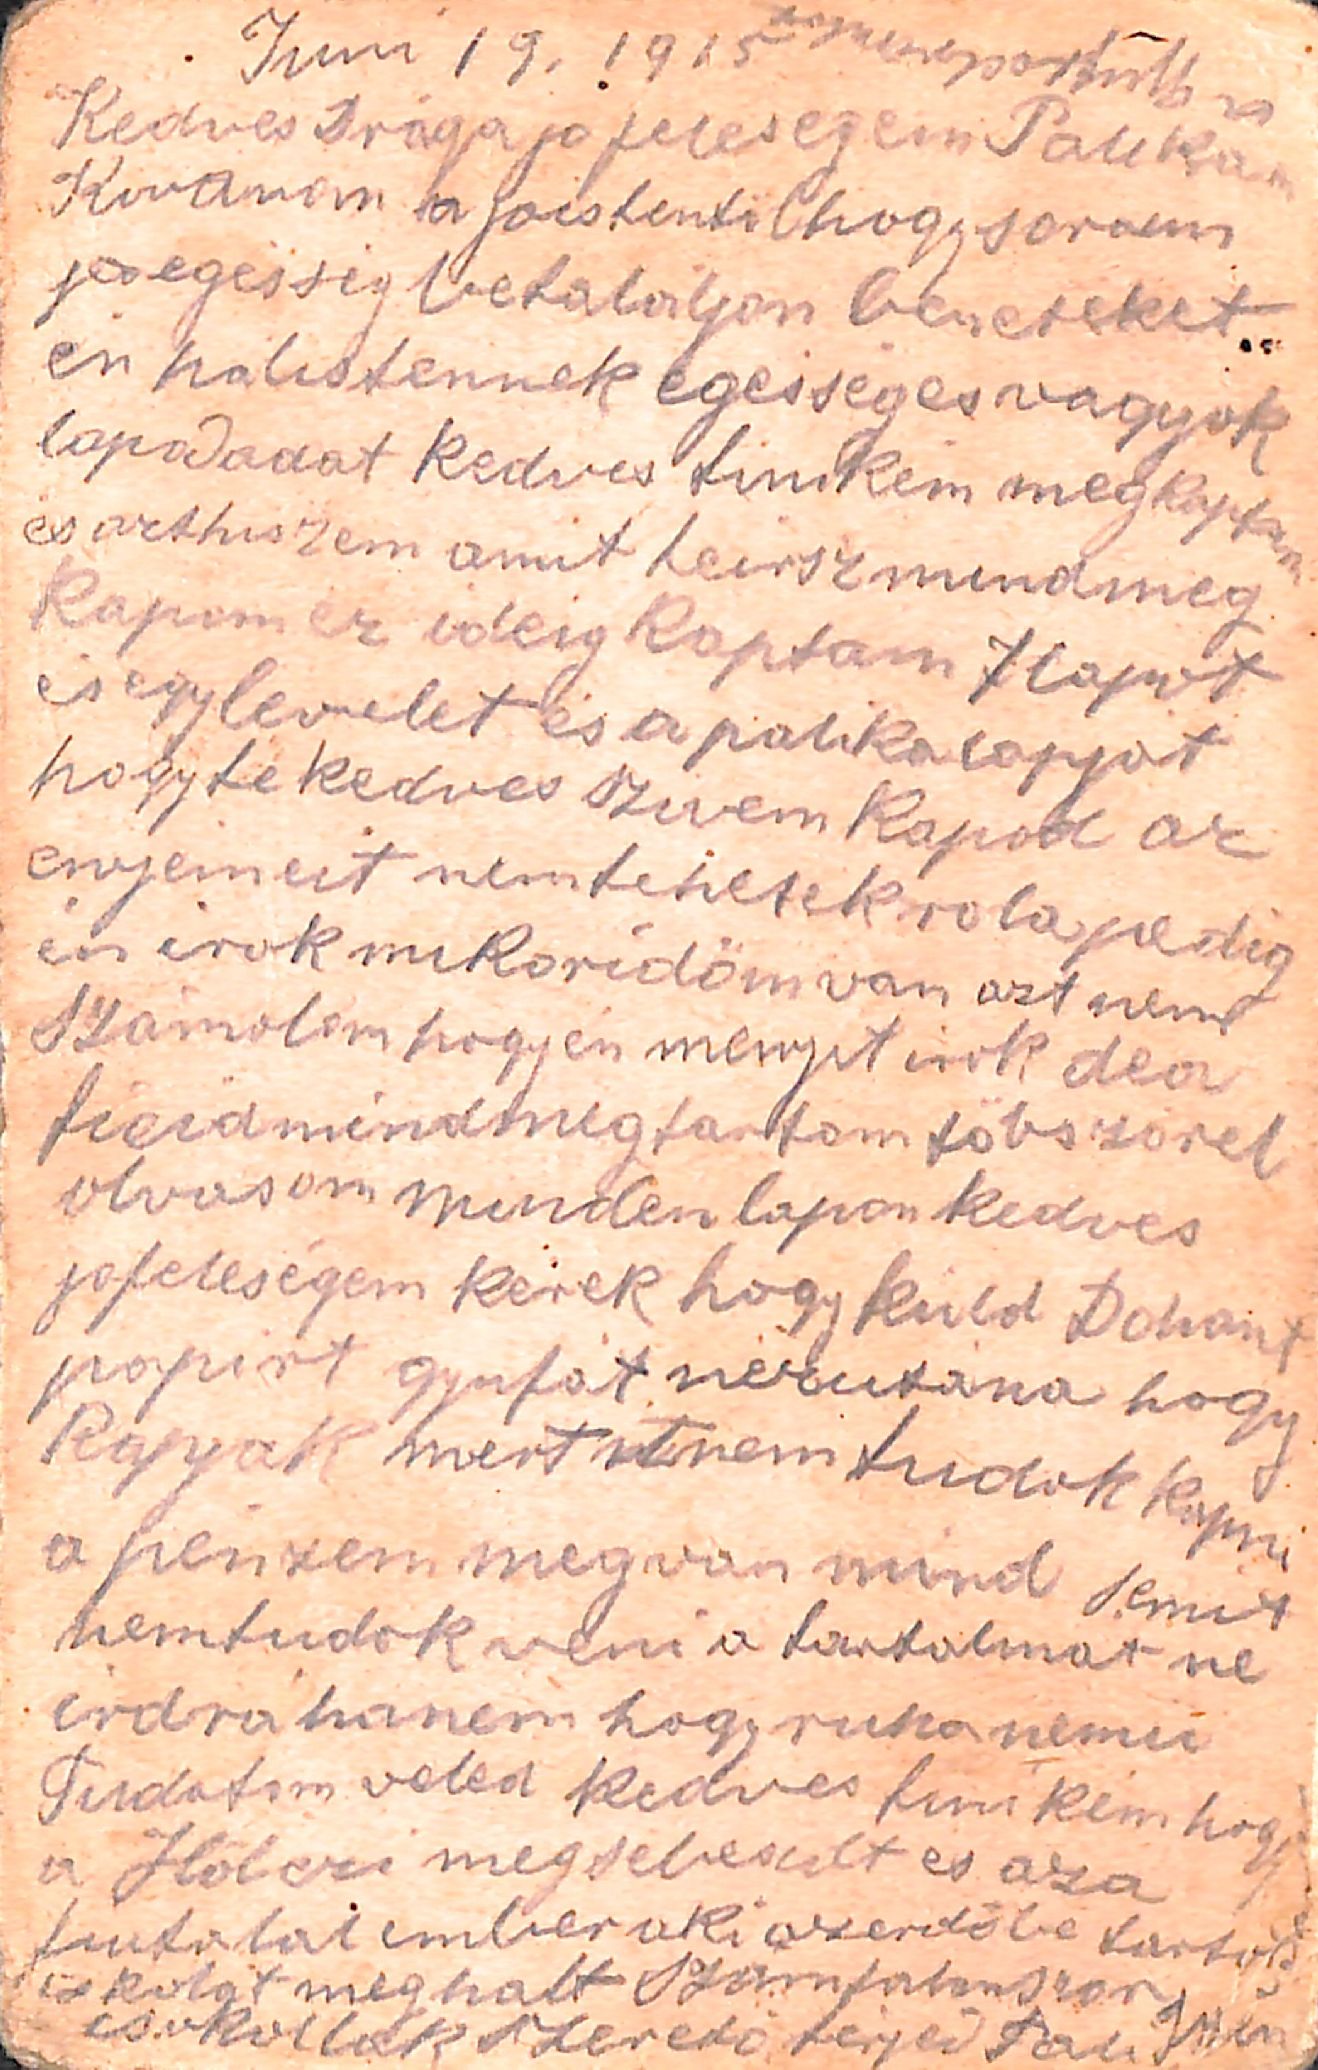 Juni 19. 1915
Kedves Drága jo felesegem Palikám
Kivánom a joistentöl hogy soraim
jo egesseg be talaljon beneteket
én halistennek egesseges vagyok
lapodadat kedves tinikém megkaptam
és azthiszem amit teirsz mindmeg
kapom ez ideig kaptam 7 lapot
és egy levelet és a palika lapját
hogy te kedves szivem kapod az
enyjemeit nemtehetek rola pedig
én irok mikor idöm van azt nem
számolom hogy én menyit irok de a
tieid mind megtartom töbször el
olvasom minden lapon kedves
jo feleségem kérek hogy küld Dohant
papirt gyufát nez utána hogy
kapjak mert it nem tudok kapni
a pénzem meg van mind semit
nemtudok veni a tartalmat ne
ird rá hanem hogy ruha nemü
Tudatom veled kedves tinikém hogy
a megsebesült es az a
fiatalal ember aki az erdöbe tartott
iskolát meghalt Számtalanszor
csokollak szeretö férjed Pali